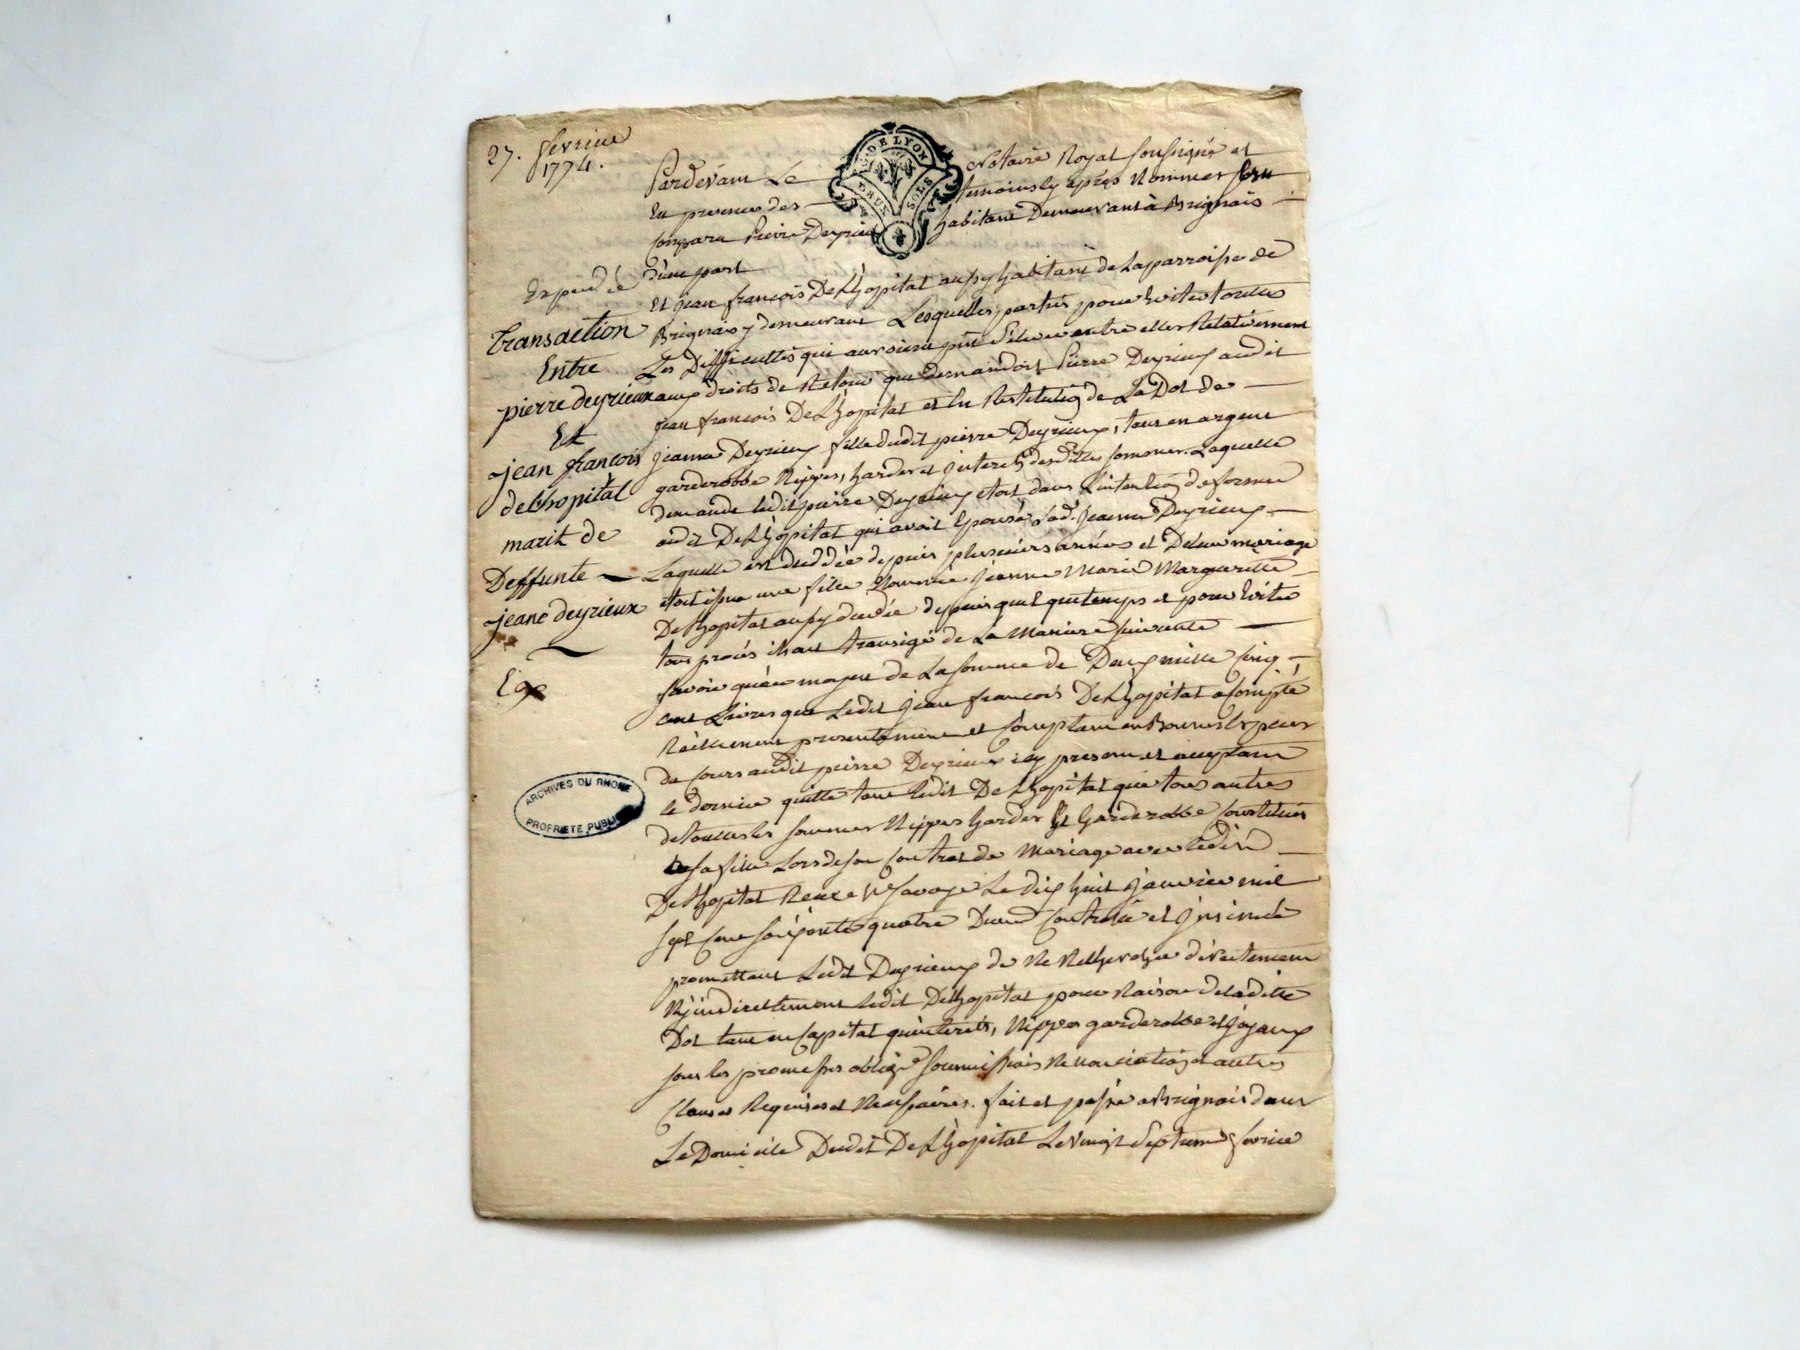 27. fevrier
1774.
G. DE LYON
DEUX SOLS
Pardevant Le Notaire Royal soussigné et
En presence des temoins cy après Nommes fut
Comparu Pierre Deyrieux habitant Demeurant à Brignais
d'une part
Et jean françois DeLhôpital aussy habitant de La parroisse de
Brignais y demeurant Lesquelles parties pour Eviter toutes
Les Difficultés qui auroient pû S'Elever entre elles Relativement
aux droits de Retour que demandoit Pierre Deyrieux audit
jean françois DeLhôpital et La Restitution de La Dot de
jeanne Deyrieux fille dudit pierre Deyrieux, tant en argent
garderobbe Nippes, hardes et jnterets desdittes sommes. Laquelle
demande ledit pierre Deyrieux etoit dans L'intention de former
audit DeLhôpital qui avoit Epousé lad. jeanne Deyrieux
Laquelle est deceddée depuis plusieurs années et De leur mariage
etoit issue une fille Nommée jeanne Marie Marguerite
DeLhopital aussy decedée depuis quelque temps et pour Eviter
tous procés ils ont transigé de La Maniere suivante
Savoir qu'au moyen de La somme de Deux mille Cinq
cent Livres que Ledit jean françois DeLhopital a Compté
Réellement presentement et Comptant en Bonnes Especes
de Cours audit pierre Deyrieux icy present et acceptant
ce dernier quitte tant ledit DeLhopital que tous autres
de touttes les sommes Nippes hardes Et Garderobbe Constitués
a sa fille Lors de son Contrat de Mariage avec ledit
DeLhopital Recu Me Savoye Le dix huit janvier mil
sept Cent soixante quatre Duement Controllé et jnsinué
promettant Ledit Deyrieux de Ne Rechercher directement
Ny jndirectement ledit DeLhopital pour Raison de ladite
Dot tant en Capital qu'interets, Nippes garderobbe et joyaux
sous les promesses oblige soumissions Renonciations et autres
Clauses Requises et Necessaires. fait et passé a Brignais dans
Le Domicile Dudit DeLhopital Le vingt Septieme fevrier
Expedié
transaction
Entre
pierre deyrieux
Et
jean françois
delhopital
marit de
Deffunte
jeane deyrieux
ARCHIVES DU RHONE
PROPRIETE PUBLIQUE